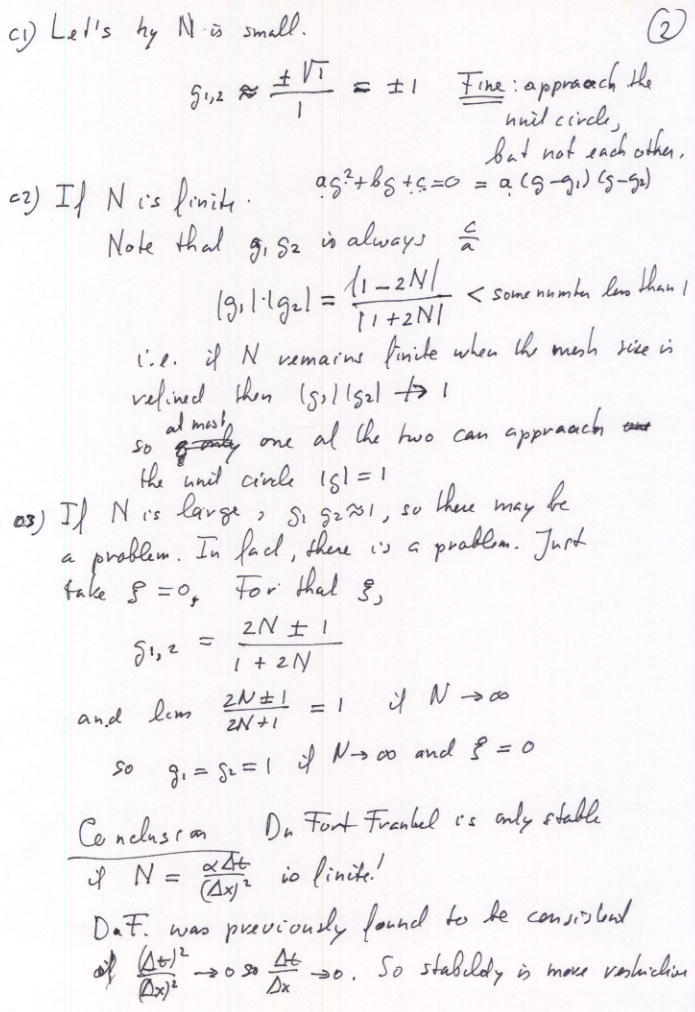 c1) Let's try N is small. (2)
g1,2 ≈ ±√1 / 1 = ±1 Fine: appraach the
unit circle,
but not each other.
c2) If N is finite. ag²+bg+c=0 = a(g-g1)(g-g2)
Note that g1 g2 is always c/a
|g1|·|g2| = |1-2N| / |1+2N| < some number less than 1
i.e. if N remains finite when the mesh size is
refined then |g1||g2| ↛ 1
so at most one of the two can appraach
the unit circle |g|=1
c3) If N is large, g1 g2≈1, so there may be
a problem. In fact, there is a problem. Just
take ξ=0, For that ξ,
g1,2 = (2N ± 1) / (1 + 2N)
and lim (2N±1)/(2N+1) = 1 if N → ∞
so g1 = g2 = 1 if N→∞ and ξ = 0
Conclusion Du Fort Frankel is only stable
if N = αΔt/(Δx)² is finite!
D.F. was previously found to be consistent
if (Δt)²/(Δx)² →0 so Δt/Δx →0. So stability is more restriction